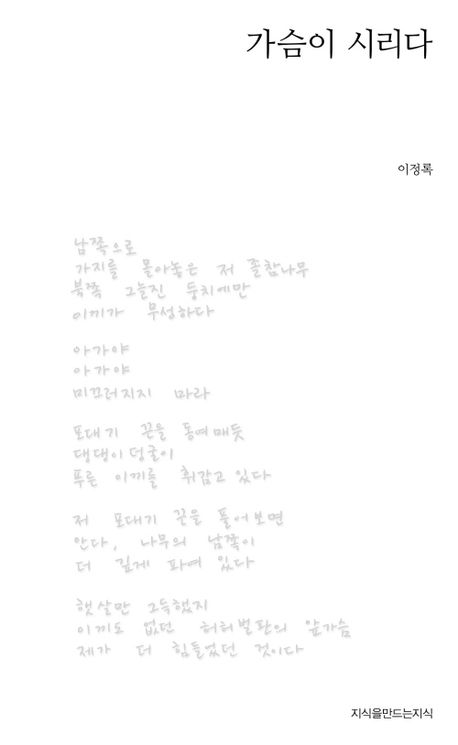 가슴이 시리다
이정록
남쪽으로
가지를 몰아놓은 저 졸참나무
북쪽 그늘진 둥치에만
이끼가 무성하다
아가야
아가야
미끄러지지 마라
포대기 끈을 동여매듯
댕댕이덩굴이
푸른 이끼를 휘감고 있다
저 포대기 끈을 풀어보면
안다, 나무의 남쪽이
더 깊게 파여 있다
햇살만 그득했지
이끼도 없던 허허벌판의 앞가슴
제가 더 힘들었던 것이다
지식을만드는지식